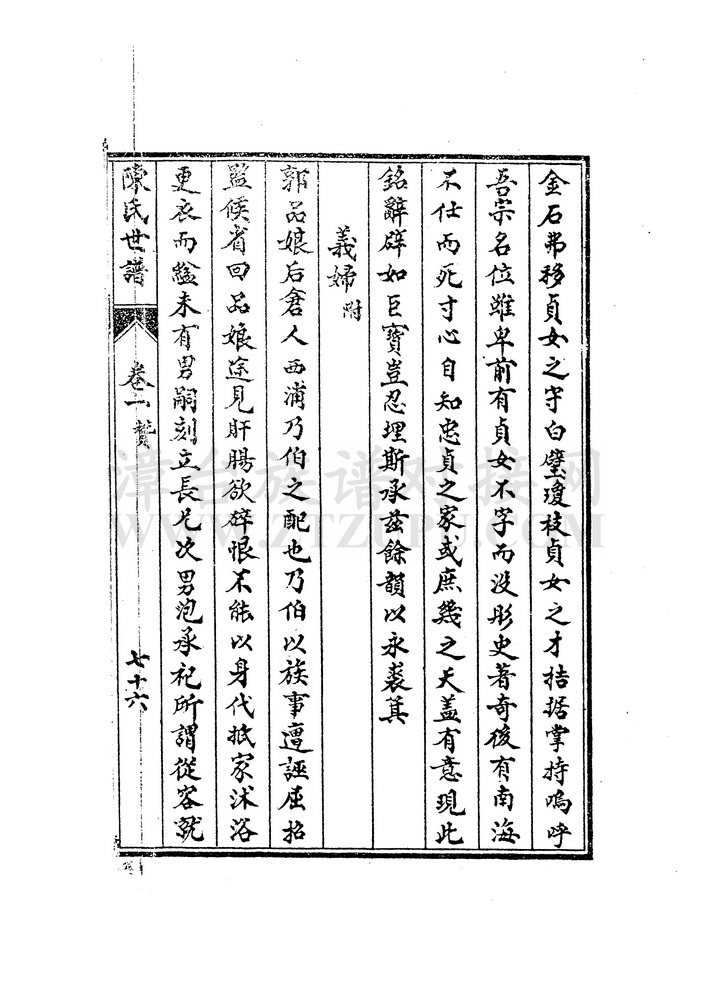 金石弗移貞女之守白璧瓊枝貞女之才拮据掌持嗚呼
吾宗名位雖卑前有貞女不字而沒彤史著奇後有南海
不仕而死寸心自知忠貞之家或庶幾之天蓋有意現此
銘辭辟如巨寶豈忍埋斯承茲餘韻以永裘箕
義婦附
郭品娘后倉人西浦乃伯之配也乃伯以族事遭誣屈招
監候省回品娘途見肝腸欲碎恨不能以身代抵家沐浴
更衣而縊未有男嗣刻立長兄次男泡承祀所謂從容就
陳氏世譜 卷二 贊 七十六
漳台族谱对接网
WWW.ZTZUPU.COM